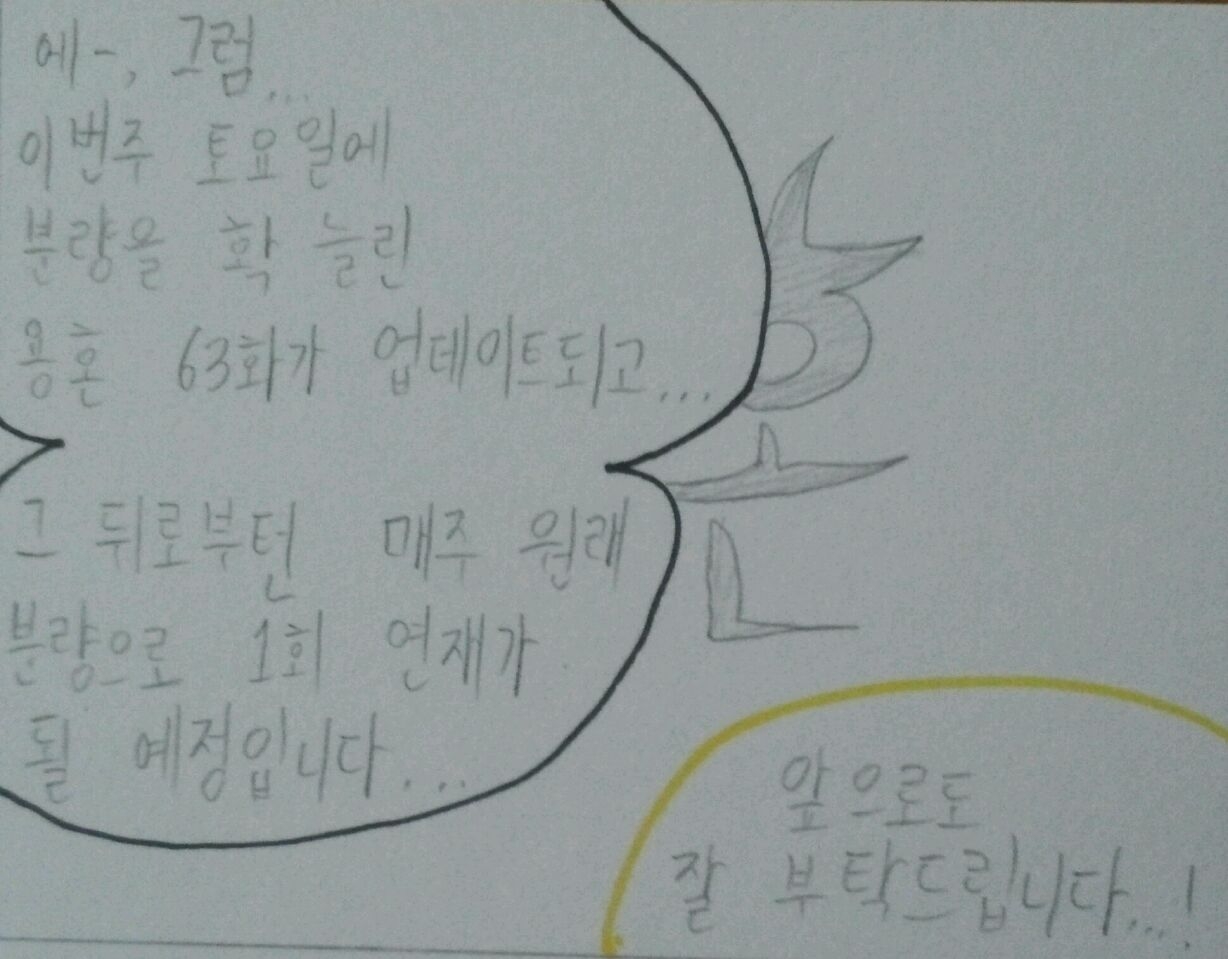 에-, 그럼...
이번주 토요일에
분량을 확 늘린
용혼 63화가 업데이트되고...
그 뒤로부턴 매주 원래
분량으로 1회 연재가
될 예정입니다....
혼
앞으로도
잘 부탁드립니다...!